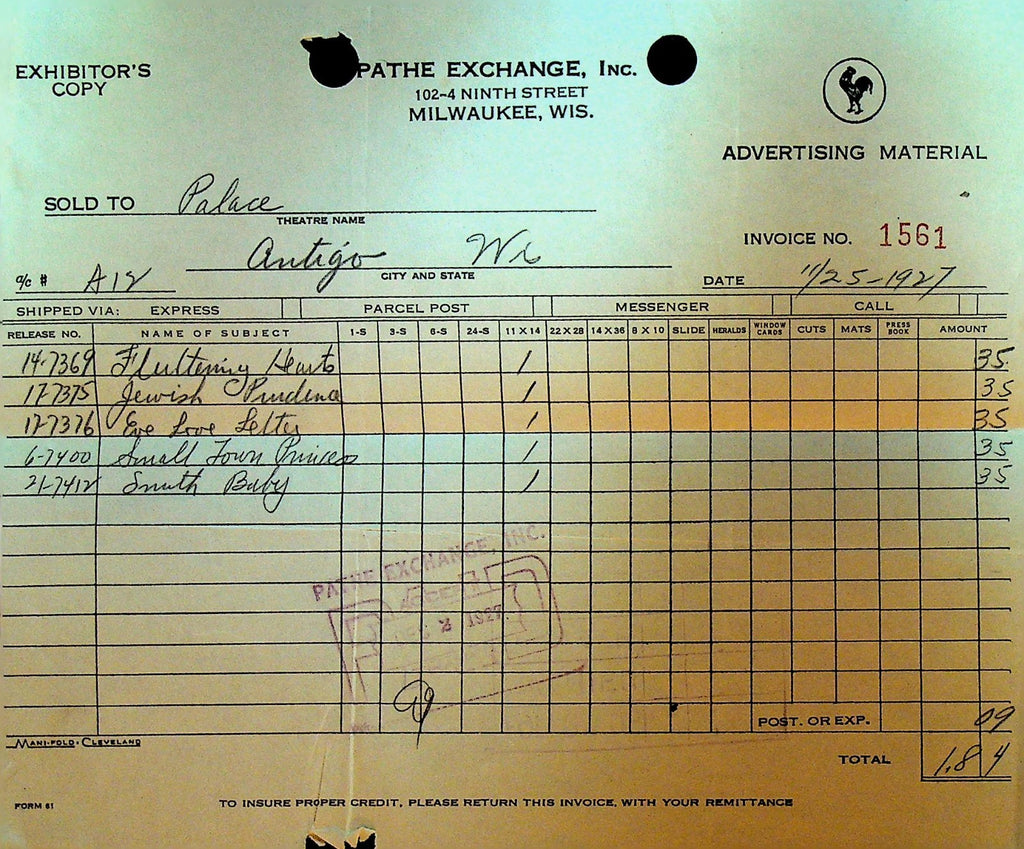 EXHIBITOR'S
COPY
PATHE EXCHANGE, INC.
102-4 NINTH STREET
MILWAUKEE, WIS.
ADVERTISING MATERIAL
SOLD TO Palace
THEATRE NAME
INVOICE NO. 1561
Antigo Wis
CITY AND STATE
a/c # A12
DATE 11/25-1927
SHIPPED VIA: EXPRESS PARCEL POST MESSENGER CALL
RELEASE NO. NAME OF SUBJECT 1-S 3-S 6-S 24-S 11 X 14 22 X 28 14 X 36 8 X 10 SLIDE HERALDS WINDOW CARDS CUTS MATS PRESS BOOK AMOUNT
14-7369 Fluttering Hearts 1 35
17-7375 Jewish Prudence 1 35
17-7376 Eve Love Letter 1 35
6-7400 Small Town Princess 1 35
21-7412 Smith Baby 1 35
PATHE EXCHANGE, INC.
DEC 2 1927
POST. OR EXP. 09
MANI-FOLD-CLEVELAND
TOTAL 1.84
FORM 61
TO INSURE PROPER CREDIT, PLEASE RETURN THIS INVOICE, WITH YOUR REMITTANCE